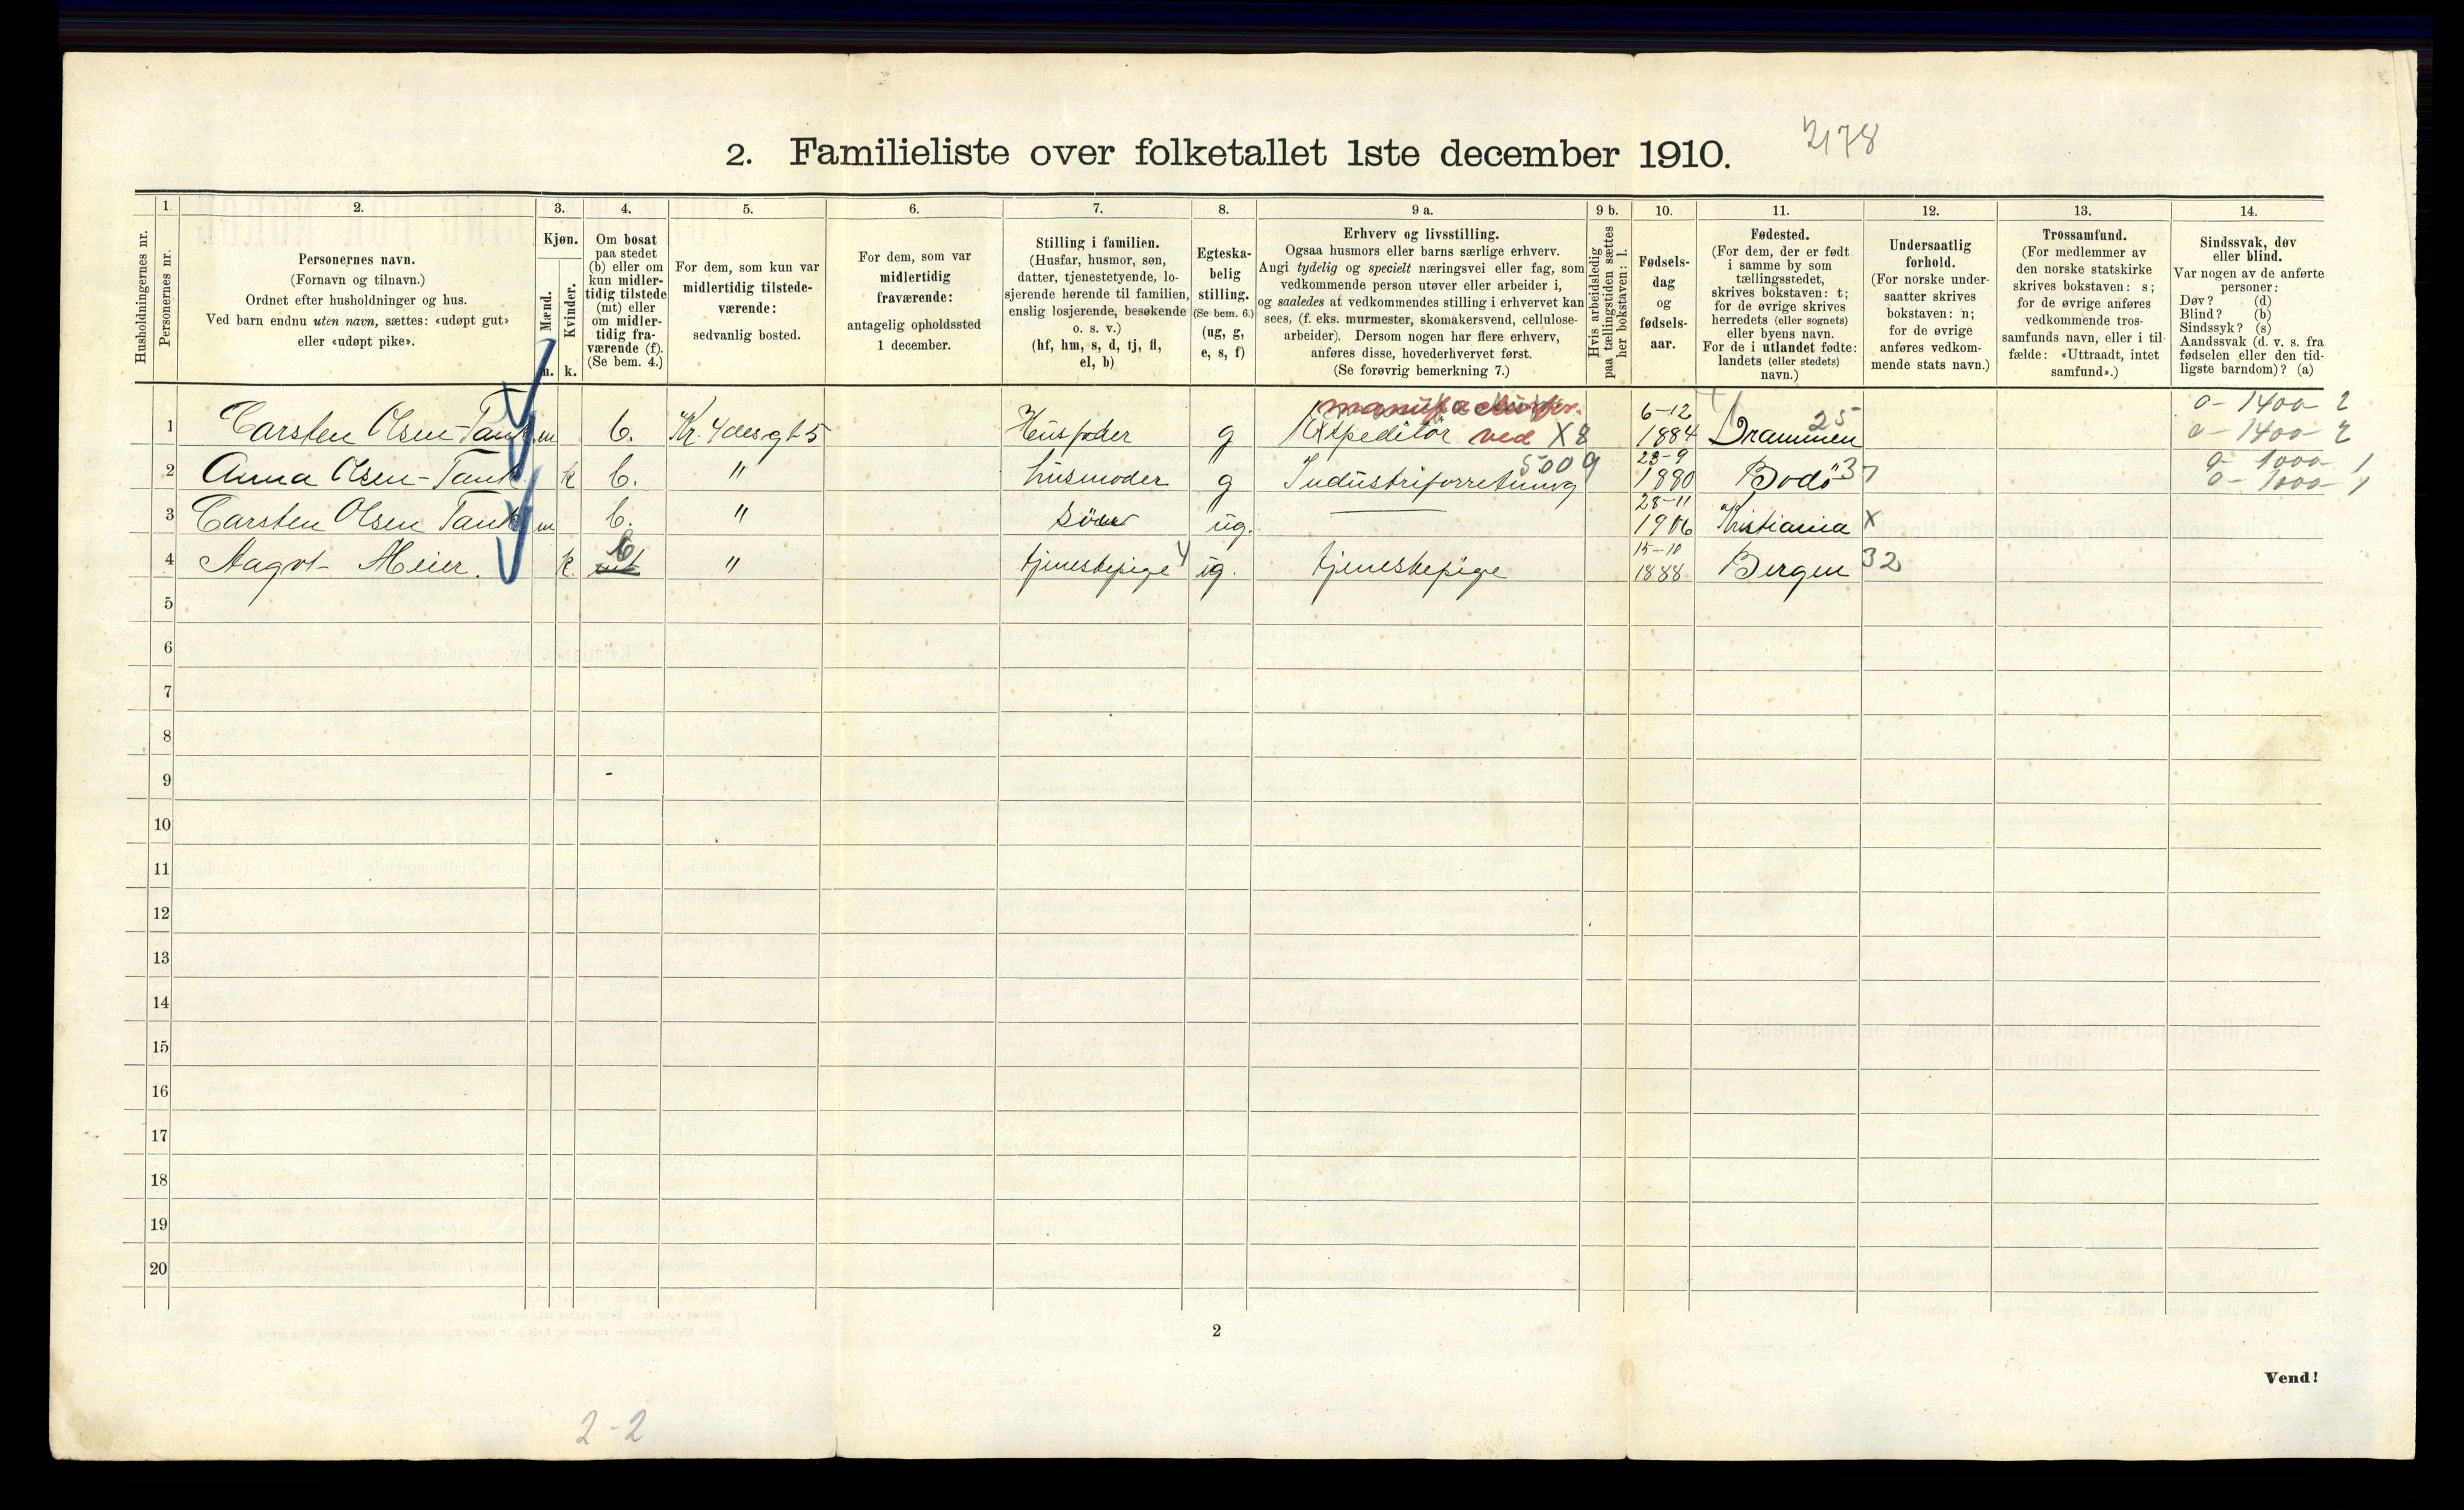 2. Familieliste over folketallet 1ste december 1910.
2178
Husholdningernes nr.
1. Personernes nr.
2. Personernes navn.
(Fornavn og tilnavn.)
Ordnet efter husholdninger og hus.
Ved barn endnu uten navn, sættes: «udøpt gut»
eller «udøpt pike».
3. Kjøn.
Mænd. Kvinder.
m. k.
4. Om bosat
paa stedet
(b) eller om
kun midler-
tidig tilstede
(mt) eller
om midler-
tidig fra-
værende (f).
(Se bem. 4.)
5. For dem, som kun var
midlertidig tilstede-
værende:
sedvanlig bosted.
6. For dem, som var
midlertidig
fraværende:
antagelig opholdssted
1 december.
7. Stilling i familien.
(Husfar, husmor, søn,
datter, tjenestetyende, lo-
sjerende hørende til familien,
enslig losjerende, besøkende
o. s. v.)
(hf, hm, s, d, tj, fl,
el, b)
8. Egteska-
belig
stilling.
(Se bem. 6.)
(ug, g,
e, s, f)
9 a. Erhverv og livsstilling.
Ogsaa husmors eller barns særlige erhverv.
Angi tydelig og specielt næringsvei eller fag, som
vedkommende person utøver eller arbeider i,
og saaledes at vedkommendes stilling i erhvervet kan
sees, (f. eks. murmester, skomakersvend, cellulose-
arbeider). Dersom nogen har flere erhverv,
anføres disse, hovederhvervet først.
(Se forøvrig bemerkning 7.)
9 b. Hvis arbeidsledig
paa tællingstiden sættes
her bokstaven: l.
10. Fødsels-
dag
og
fødsels-
aar.
11. Fødested.
(For dem, der er født
i samme by som
tællingsstedet,
skrives bokstaven: t;
for de øvrige skrives
herredets (eller sognets)
eller byens navn.
For de i utlandet fødte:
landets (eller stedets)
navn.)
12. Undersaatlig
forhold.
(For norske under-
saatter skrives
bokstaven: n;
for de øvrige
anføres vedkom-
mende stats navn.)
13. Trossamfund.
(For medlemmer av
den norske statskirke
skrives bokstaven: s;
for de øvrige anføres
vedkommende tros-
samfunds navn, eller i til-
fælde: «Uttraadt, intet
samfund».)
14. Sindssvak, døv
eller blind.
Var nogen av de anførte
personer:
Døv? (d)
Blind? (b)
Sindssyk? (s)
Aandssvak (d. v. s. fra
fødselen eller den tid-
ligste barndom)? (a)
1 Carsten Olsen-Tank m b. Kr. 4desgt 5 Husfader g Expeditör ved X8 6-12 1884 Drammen 25 0-1400 2
0-1400-2
2 Anna Olsen-Tank k b. " husmoder g Industriforretning 5009 23-9 1880 Bodö 37 0-1000 1
0-1000-1
3 Carsten Olsen Tank m b. " ug. 28-11 1906 Kristiania X
4 Aagot Meier. k. b " tjenestepige 4 ug. tjenestepige 15-10 1888 Bergen 32
5
6
7
8
9
10
11
12
13
14
15
16
17
18
19
20
2
Vend!
2-2